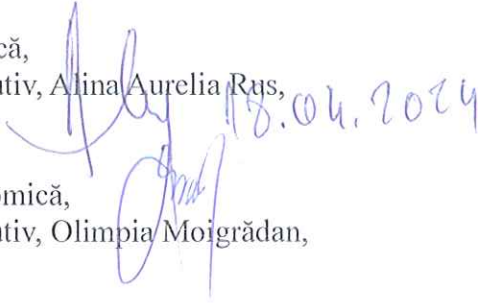 că,
utiv, Alina Aurelia Rus,
18.04.2024
omică,
utiv, Olimpia Moigrădan,